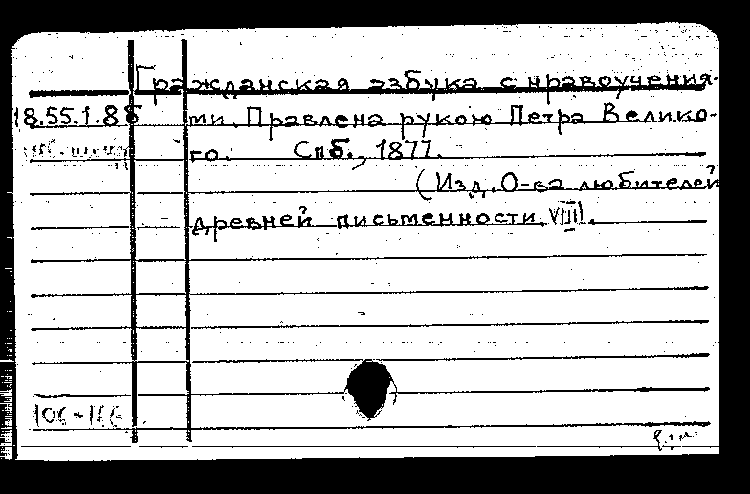 Гражданская азбука с нравоучения-
18.55.1.88 ми. Правлена рукою Петра Велико-
го. Спб., 1877.
(Изд. О-ва любителей
древней письменности. VIII).